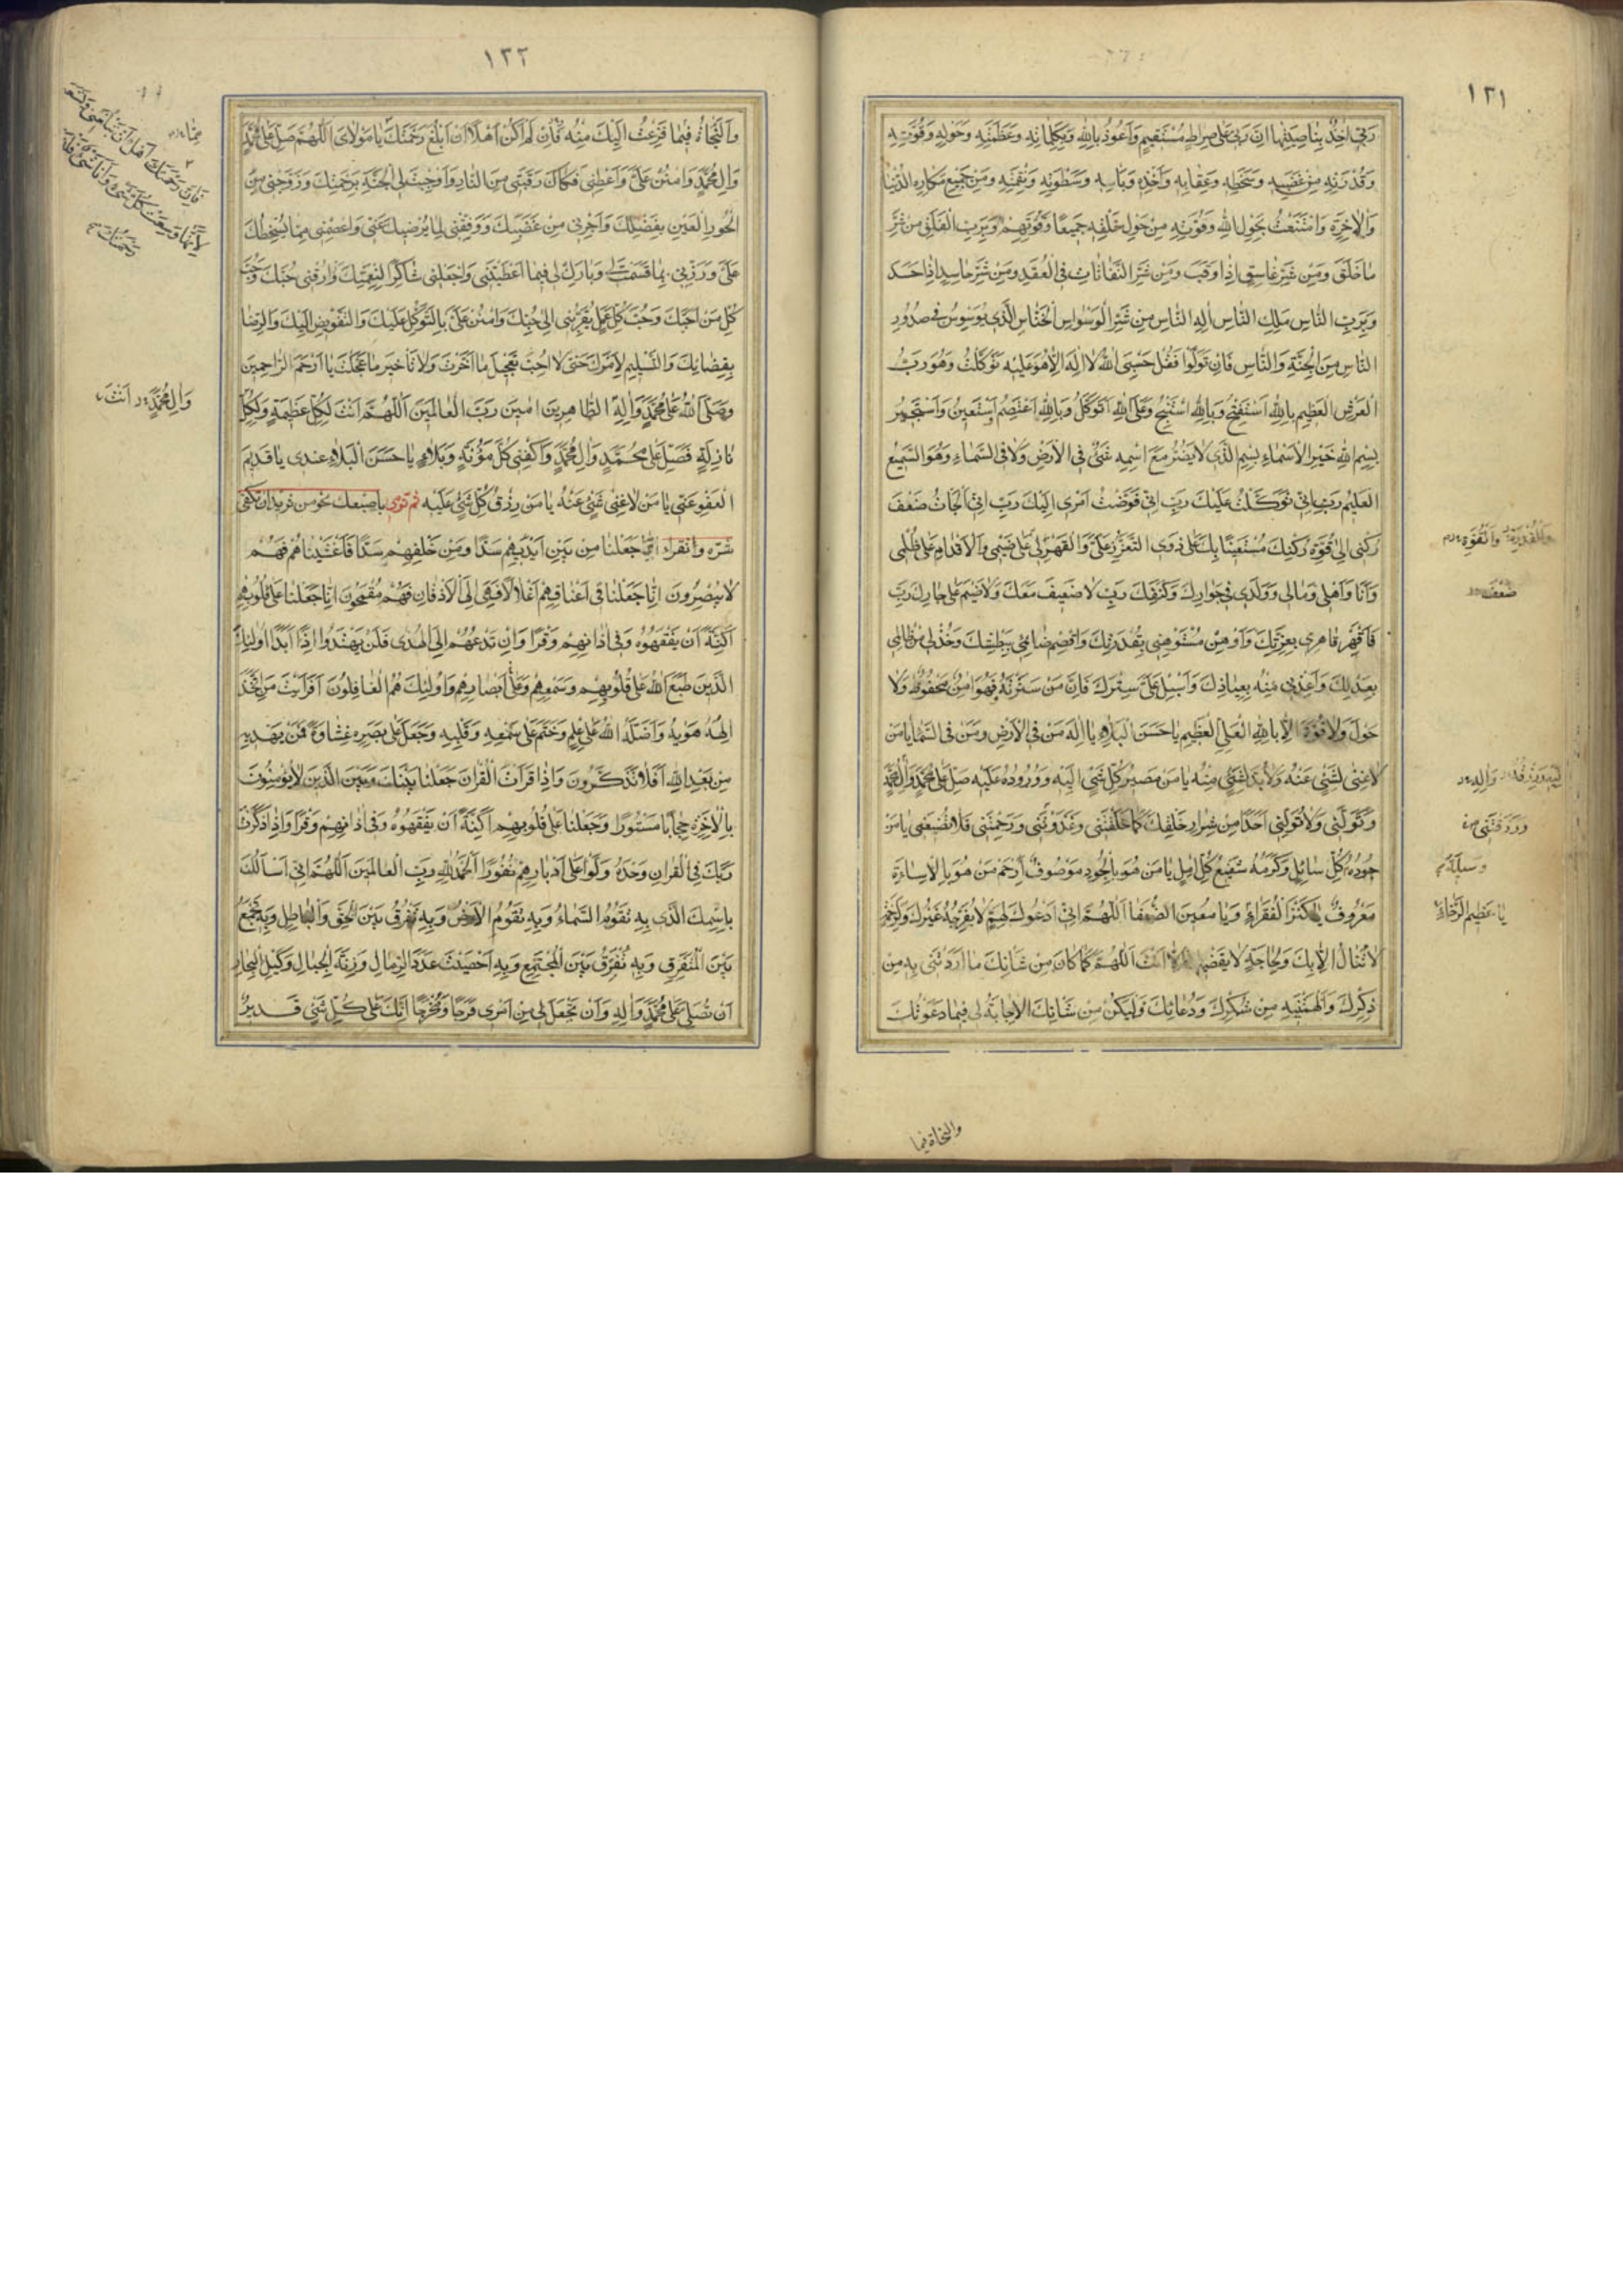 ١٣١
رَبّي اٰخِذٌ بِنٰاصِيَتِهٰا اِنَّ رَبّي عَلىٰ صِرٰاطٍ مُسْتَقيمٍ وَاَعُوذُ بِاللهِ وَبِكَلِمٰاتِهِ وَعَظَمَتِهِ وَحَوْلِهِ وَقُوَّتِهِ
وَقُدْرَتِهِ مِنْ غَضَبِهِ وَسَخَطِهِ وَعِقٰابِهِ وَاَخْذِهِ وَبَأسِهِ وَسَطْوَتِهِ وَنَقِمَتِهِ وَمِنْ جَميعِ مَكٰارِهِ الدُّنْيٰا
وَالْاٰخِرَةِ وَامْتَنَعْتُ بِحَوْلِ اللهِ وَقُوَّتِهِ مِنْ حَوْلِ خَلْقِهِ جَميعًا وَقُوَّتِهِمْ وَبِرَبِّ الْفَلَقِ مِنْ شَرِّ
مٰا خَلَقَ وَمِنْ شَرِّ غٰاسِقٍ اِذٰا وَقَبَ وَمِنْ شَرِّ النَّفّٰاثٰاتِ فِي الْعُقَدِ وَمِنْ شَرِّ حٰاسِدٍ اِذٰا حَسَدَ
وَبِرَبِّ النّٰاسِ مَلِكِ النّٰاسِ اِلٰهِ النّٰاسِ مِنْ شَرِّ الْوَسْوٰاسِ الْخَنّٰاسِ الَّذي يُوَسْوِسُ في صُدُورِ
النّٰاسِ مِنَ الْجِنَّةِ وَالنّٰاسِ فَاِنْ تَوَلَّوْا فَقُلْ حَسْبِيَ اللهُ لاٰ اِلٰهَ اِلاّٰ هُوَ عَلَيْهِ تَوَكَّلْتُ وَهُوَ رَبُّ
الْعَرْشِ الْعَظيمِ بِاللهِ اَسْتَفْتِحُ وَبِاللهِ اَسْتَنْجِحُ وَعَلَى اللهِ اَتَوَكَّلُ وَبِاللهِ اَعْتَصِمُ وَاَسْتَعينُ وَاَسْتَجيرُ
بِسْمِ اللهِ خَيْرِ الْاَسْمٰاءِ بِسْمِ الَّذي لاٰ يَضُرُّ مَعَ اسْمِهِ شَيْءٌ فِي الْاَرْضِ وَلاٰ فِي السَّمٰاءِ وَهُوَ السَّميعُ
الْعَليمُ رَبِّ اِنّي تَوَكَّلْتُ عَلَيْكَ رَبِّ اِنّي فَوَّضْتُ اَمْري اِلَيْكَ رَبِّ اِنّي اَلْجَأتُ ضَعْفَ
رُكْني اِلىٰ قُوَّةِ رُكْنِكَ مُسْتَعينًا بِكَ عَلىٰ ذَوِي التَّعَزُّزِ عَلَيَّ وَالْقَهْرِ لي عَلىٰ ضَيْمي وَالْاِقْدٰامِ عَلىٰ ظُلْمي
وَاَنَا وَاَهْلي وَمٰالي وَوُلْدي في جِوٰارِكَ وَكَنَفِكَ رَبِّ لاٰ ضَعيفَ مَعَكَ وَلاٰ ضَيْمَ عَلىٰ جٰارِكَ رَبِّ
فَاقْهَرْ قٰاهِري بِعِزَّتِكَ وَاَوْهِنْ مُسْتَوْهِني بِقُدْرَتِكَ وَاقْصِمْ ضٰائِمي بِبَطْشِكَ وَخُذْ لي مِنْ ظٰالِمي
بِعَدْلِكَ وَاَعِذْني مِنْهُ بِعِيٰاذِكَ وَاَسْبِلْ عَلَيَّ سِتْرَكَ فَاِنَّ مَنْ سَتَرْتَهُ فَهُوَ اٰمِنٌ مَحْفُوظٌ وَلاٰ
حَوْلَ وَلاٰ قُوَّةَ اِلاّٰ بِاللهِ الْعَلِيِّ الْعَظيمِ يٰا حَسَنَ الْبَلاٰءِ يٰا اِلٰهَ مَنْ فِي الْاَرْضِ وَمَنْ فِي السَّمٰاءِ يٰا مَنْ
لاٰ غِنىٰ لِشَيْءٍ عَنْهُ وَلاٰ بُدَّ لِشَيْءٍ مِنْهُ يٰا مَنْ مَصيرُ كُلِّ شَيْءٍ اِلَيْهِ وَوُرُودُهُ عَلَيْهِ صَلِّ عَلىٰ مُحَمَّدٍ وَاٰلِ مُحَمَّدٍ
وَتَوَلَّني وَلاٰ تُوَلِّني اَحَدًا مِنْ شِرٰارِ خَلْقِكَ كَمٰا خَلَقْتَني وَغَذَوْتَني وَرَحِمْتَني فَلاٰ تُضَيِّعْني يٰا مَنْ
جُودُهُ كُلِّ سٰائِلٍ وَكَرَمُهُ شَفيعُ كُلِّ اٰمِلٍ يٰا مَنْ هُوَ بِالْجُودِ مَوْصُوفٌ اِرْحَمْ مَنْ هُوَ بِالْاِسٰاءَةِ
مَعْرُوفٌ يٰا كَنْزَ الْفُقَرٰاءِ وَيٰا مُعينَ الضُّعَفٰا اَللّٰهُمَّ اِنّي اَدْعُوكَ لِهَمٍّ لاٰ يُفَرِّجُهُ غَيْرُكَ وَلِرَحْمَةٍ
لاٰ تُنٰالُ اِلاّٰ بِكَ وَلِحٰاجَةٍ لاٰ يَقْضيهٰا اِلاّٰ اَنْتَ اَللّٰهُمَّ كَمٰا كٰانَ مِنْ شَأنِكَ مٰا اَرَدْتَني بِهِ مِنْ
ذِكْرِكَ وَاَلْهَمْتَنيهِ مِنْ شُكْرِكَ وَدُعٰائِكَ وَلْيَكُنْ مِنْ شَأنِكَ الْاِجٰابَةُ لي فيمٰا دَعَوْتُكَ
وَالْقُدْرَةِ وَالْقُوَّةِ
ضَعْفَ
وَاٰلِهِ
وَرَزَقْتَني
وَسيلَةُ
يٰا عَظيمَ الرَّجٰاءِ
والنجاة فيما
١٣٢
وَالنَّجٰاةُ فيمٰا فَزِعْتُ اِلَيْكَ مِنْهُ فَاِنْ لَمْ اَكُنْ اَهْلاً اَنْ اَبْلُغَ رَحْمَتَكَ يٰا مَوْلاٰيَ اَللّٰهُمَّ صَلِّ عَلىٰ مُحَمَّدٍ
وَاٰلِ مُحَمَّدٍ وَامْنُنْ عَلَيَّ وَاَعْطِني فَكٰاكَ رَقَبَتي مِنَ النّٰارِ وَاَوْجِبْ لِيَ الْجَنَّةَ بِرَحْمَتِكَ وَزَوِّجْني مِنَ
الْحُورِ الْعينِ بِفَضْلِكَ وَاَجِرْني مِنْ غَضَبِكَ وَوَفِّقْني لِمٰا يُرْضيكَ عَنّي وَاعْصِمْني مِمّٰا يُسْخِطُكَ
عَلَيَّ وَرَضِّني بِمٰا قَسَمْتَ لي وَبٰارِكْ لي فيمٰا اَعْطَيْتَني وَاجْعَلْني شٰاكِرًا لِنِعْمَتِكَ وَارْزُقْني حُبَّكَ وَحُبَّ
كُلِّ مَنْ اَحَبَّكَ وَحُبَّ كُلِّ عَمَلٍ يُقَرِّبُني اِلىٰ حُبِّكَ وَامْنُنْ عَلَيَّ بِالتَّوَكُّلِ عَلَيْكَ وَالتَّفْويضِ اِلَيْكَ وَالرِّضٰا
بِقَضٰائِكَ وَالتَّسْليمِ لِاَمْرِكَ حَتّىٰ لاٰ اُحِبَّ تَعْجيلَ مٰا اَخَّرْتَ وَلاٰ تَأخيرَ مٰا عَجَّلْتَ يٰا اَرْحَمَ الرّٰاحِمينَ
وَصَلَّى اللهُ عَلىٰ مُحَمَّدٍ وَاٰلِهِ الطّٰاهِرينَ اٰمينَ رَبَّ الْعٰالَمينَ اَللّٰهُمَّ اَنْتَ لِكُلِّ عَظيمَةٍ وَلِكُلِّ
نٰازِلَةٍ فَصَلِّ عَلىٰ مُحَمَّدٍ وَاٰلِ مُحَمَّدٍ وَاكْفِني كُلَّ مَؤُنَةٍ وَبَلاٰءٍ يٰا حَسَنَ الْبَلاٰءِ عِنْدي يٰا قَديمَ
الْعَفْوِ عَنّي يٰا مَنْ لاٰ غِنىٰ شَيْءٍ عَنْهُ يٰا مَنْ رِزْقُ كُلِّ شَيْءٍ عَلَيْهِ ثم تومى باصبعك نحو من تريد ان تكفى
شرّه وتقرأ اِنّٰا جَعَلْنٰا مِنْ بَيْنِ اَيْديهِمْ سَدًّا وَمِنْ خَلْفِهِمْ سَدًّا فَاَغْشَيْنٰاهُمْ فَهُمْ
لاٰ يُبْصِرُونَ اِنّٰا جَعَلْنٰا في اَعْنٰاقِهِمْ اَغْلاٰلاً فَهِيَ اِلَى الْاَذْقٰانِ فَهُمْ مُقْمَحُونَ اِنّٰا جَعَلْنٰا عَلىٰ قُلُوبِهِمْ
اَكِنَّةً اَنْ يَفْقَهُوهُ وَفي اٰذٰانِهِمْ وَقْرًا وَاِنْ تَدْعُهُمْ اِلَى الْهُدىٰ فَلَنْ يَهْتَدُوا اِذًا اَبَدًا اُولٰئِكَ
الَّذينَ طَبَعَ اللهُ عَلىٰ قُلُوبِهِمْ وَسَمْعِهِمْ وَعَلىٰ اَبْصٰارِهِمْ وَاُولٰئِكَ هُمُ الْغٰافِلُونَ اَفَرَاَيْتَ مَنِ اتَّخَذَ
اِلٰهَهُ هَوٰيهُ وَاَضَلَّهُ اللهُ عَلىٰ عِلْمٍ وَخَتَمَ عَلىٰ سَمْعِهِ وَقَلْبِهِ وَجَعَلَ عَلىٰ بَصَرِهِ غِشٰاوَةً فَمَنْ يَهْديهِ
مِنْ بَعْدِ اللهِ اَفَلاٰ تَذَكَّرُونَ وَاِذٰا قَرَأتَ الْقُرْاٰنَ جَعَلْنٰا بَيْنَكَ وَبَيْنَ الَّذينَ لاٰ يُؤْمِنُونَ
بِالْاٰخِرَةِ حِجٰابًا مَسْتُورًا وَجَعَلْنٰا عَلىٰ قُلُوبِهِمْ اَكِنَّةً اَنْ يَفْقَهُوهُ وَفي اٰذٰانِهِمْ وَقْرًا وَاِذٰا ذَكَرْتَ
رَبَّكَ فِي الْقُرْاٰنِ وَحْدَهُ وَلَّوْا عَلىٰ اَدْبٰارِهِمْ نُفُورًا اَلْحَمْدُ لِلّٰهِ رَبِّ الْعٰالَمينَ اَللّٰهُمَّ اِنّي اَسْأَلُكَ
بِاسْمِكَ الَّذي بِهِ تَقُومُ السَّمٰاءُ وَبِهِ تَقُومُ الْاَرْضُ وَبِهِ تُفَرِّقُ بَيْنَ الْحَقِّ وَالْبٰاطِلِ وَبِهِ تَجْمَعُ
بَيْنَ الْمُتَفَرِّقِ وَبِهِ تُفَرِّقُ بَيْنَ الْمُجْتَمِعِ وَبِهِ اَحْصَيْتَ عَدَدَ الرِّمٰالِ وَزِنَةَ الْجِبٰالِ وَكَيْلَ الْبِحٰارِ
اَنْ تُصَلِّيَ عَلىٰ مُحَمَّدٍ وَاٰلِهِ وَاَنْ تَجْعَلَ لي مِنْ اَمْري فَرَجًا وَمَخْرَجًا اِنَّكَ عَلىٰ كُلِّ شَيْءٍ قَديرٌ
مِمّٰا
فَاِنَّ رَحْمَتَكَ اَهْلٌ اَنْ تَبْلُغَني وَتَسَعَني
لِاَنَّهٰا وَسِعَتْ كُلَّ شَيْءٍ وَاَنَا شَيْءٌ فَلْتَسَعْني
رَحْمَتُكَ
وَاٰلِ مُحَمَّدٍ اَنْتَ